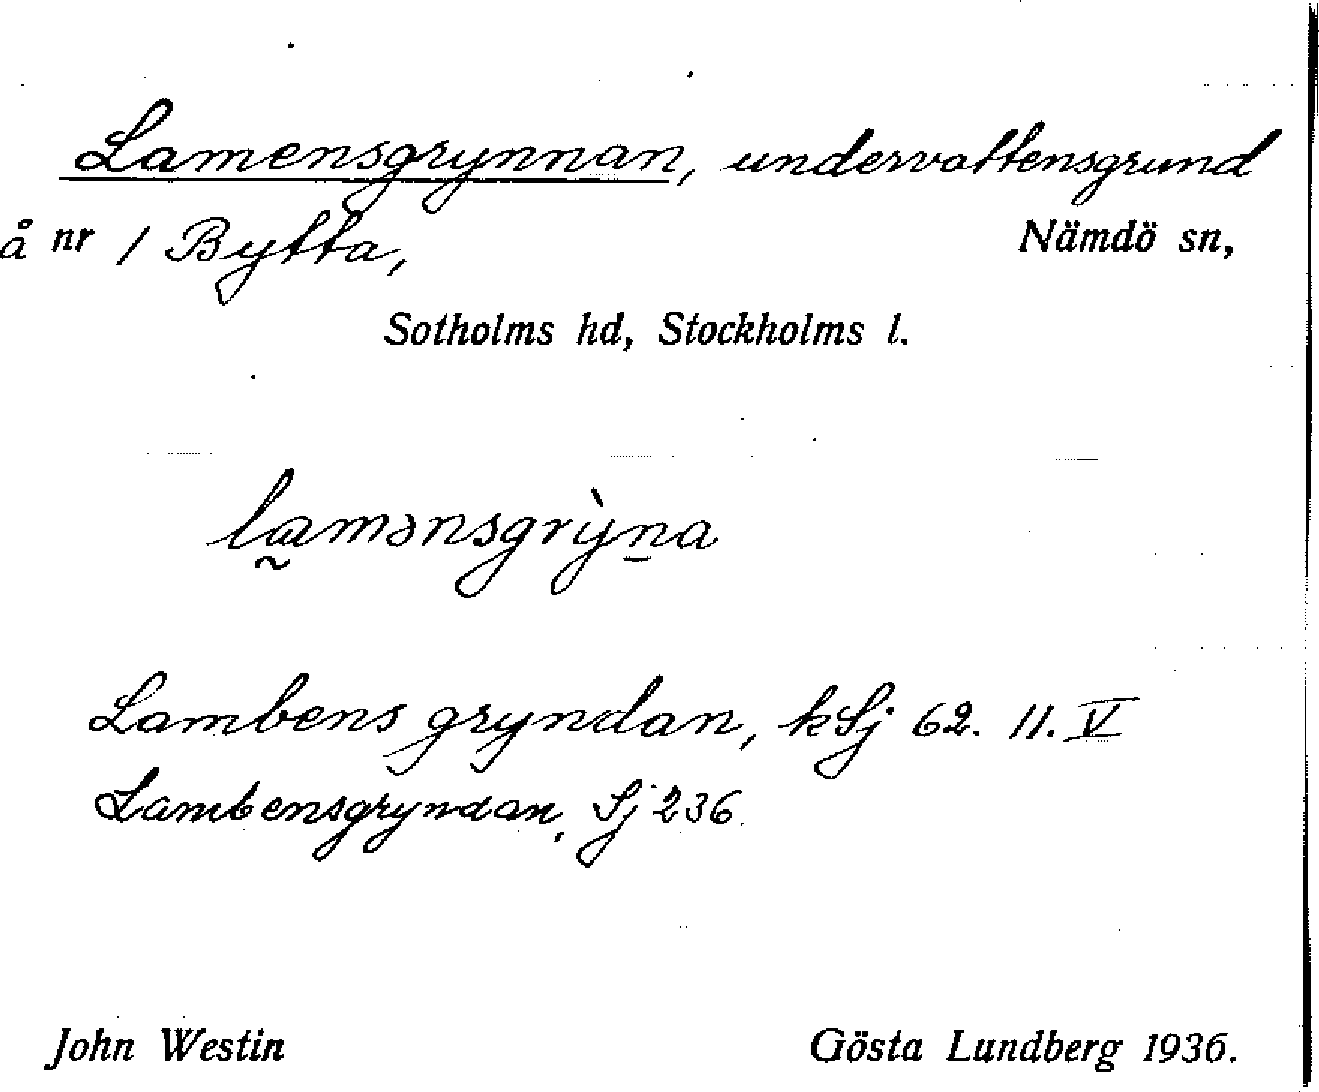 Lamensgrynnan, undervattensgrund
å nr 1 Bytta, Nämdö sn,
Sotholms hd, Stockholms l.
lamənsgrỳna
Lambens gryndan, kSj 62. 11. V
Lambensgryndan, Sj 236.
John Westin Gösta Lundberg 1936.